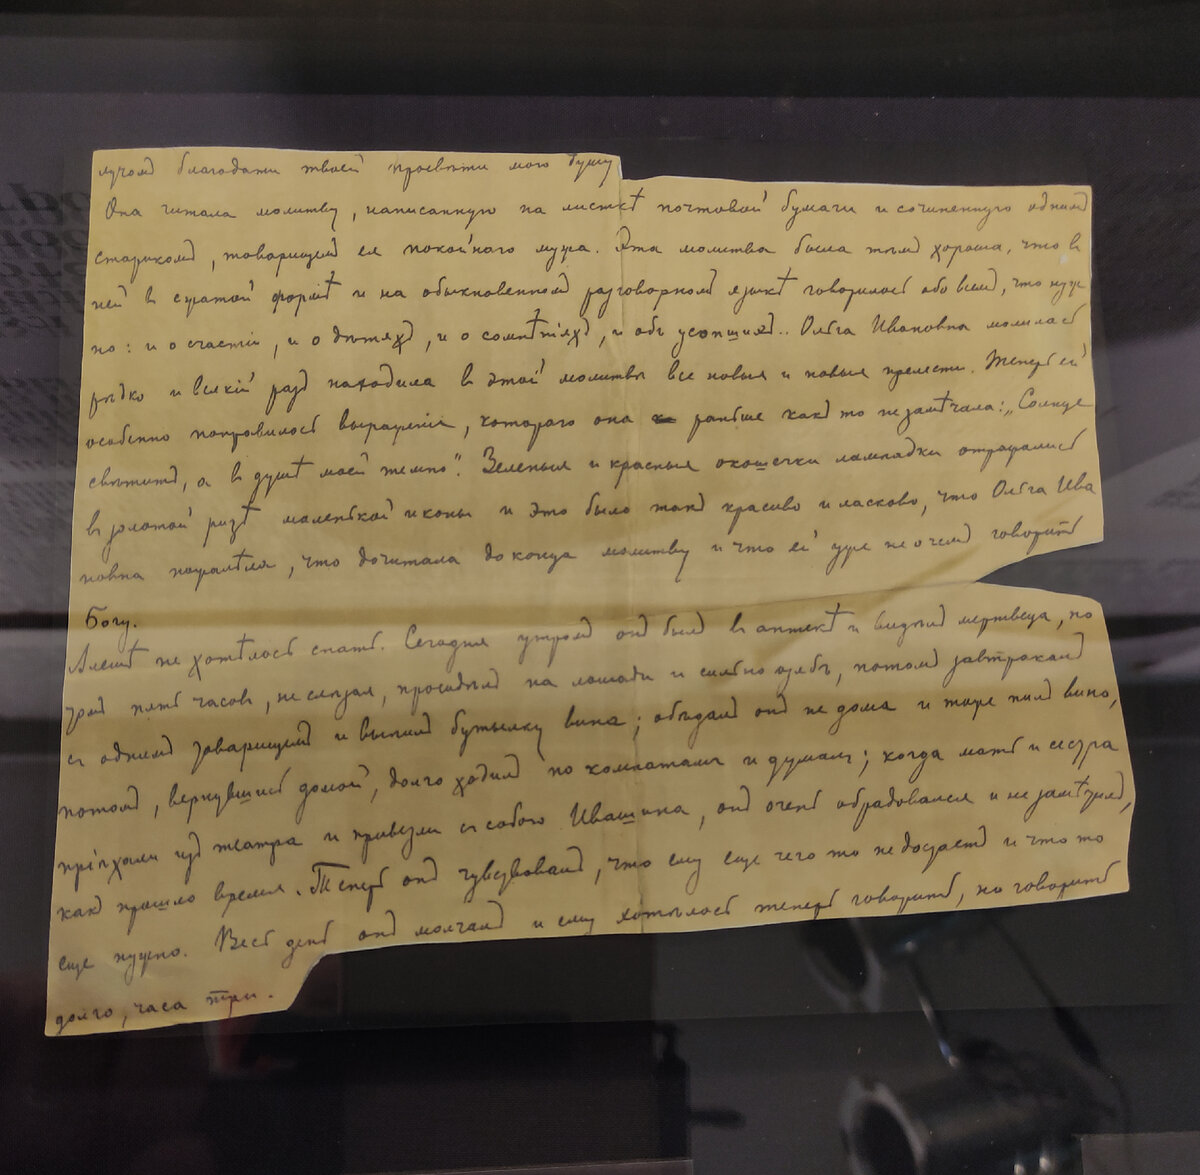 лучомъ благодати твоей просвѣти мою душу
Она читала молитву, написанную на листкѣ почтовой бумаги и сочиненную однимъ
старикомъ, товарищемъ ея покойнаго мужа. Эта молитва была тѣмъ хороша, что въ
ней въ сжатой формѣ и на обыкновенномъ разговорномъ языкѣ говорилось обо всемъ, что нуж
но: и о счастіи, и о дѣтяхъ, и о сомнѣніяхъ, и объ усопшихъ.. Ольга Ивановна молилась
рѣдко и всякій разъ находила въ этой молитвѣ все новыя и новыя прелести. Теперь ей
особенно понравилось выраженіе, котораго она раньше какъ то не замѣчала: „Солнце
свѣтитъ, а въ душѣ моей темно". Зеленыя и красныя окошечки лампадки отражались
въ золотой ризѣ маленькой иконы и это было такъ красиво и ласково, что Ольга Ива
новна пожалѣла, что дочитала до конца молитву и что ей уже не о чемъ говорить
Богу.
Алешѣ не хотѣлось спать. Сегодня утромъ онъ былъ въ аптекѣ и видѣлъ мертвеца, по
томъ пять часовъ, не слѣзая, просидѣлъ на лошади и сильно озябъ, потомъ завтракалъ
съ однимъ товарищемъ и выпилъ бутылку вина; обѣдалъ онъ не дома и тоже пилъ вино,
потомъ, вернувшись домой, долго ходилъ по комнатамъ и думалъ; когда мать и сестра
пріѣхали изъ театра и привезли съ собою Ивашина, онъ очень обрадовался и не замѣтилъ,
какъ прошло время. Теперь онъ чувствовалъ, что ему еще чего то не достаетъ и что то
еще нужно. Весь день онъ молчалъ и ему хотѣлось теперь говорить, но говорить
долго, часа три.